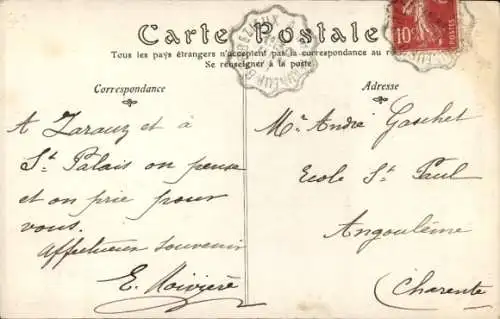 Carte Postale
Tous les pays étrangers n'acceptent pas la correspondance au
Se renseigner à la poste
Correspondance
Adresse
A Zarauz et à
St. Palais on pense
et on prie pour
vous.
Affectueux souvenir
E. Noivière
Mr. André Gaschet
Ecole St. Paul
Angoulême
Charente
10c